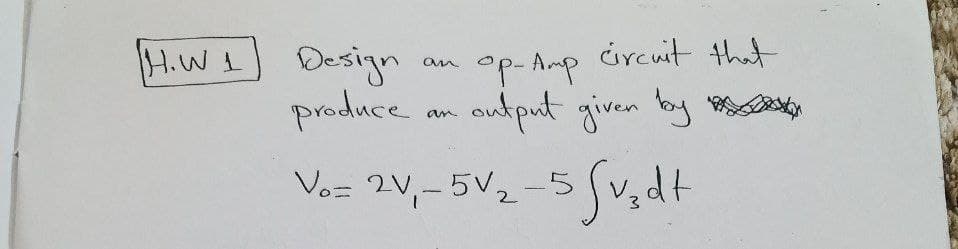 H.W 1 Design an op-Amp circuit that
produce an output given by
Vo= 2V₁-5V₂-5∫v₃dt